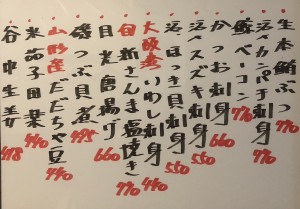 生本鮪ぶつ 770
活〆カンパチ刺身 770
鯨ベーコン 770
かつお刺身 660
活〆スズキ刺身 550
活ほっき貝刺身 550
大阪産いわし刺身 440
旬 新さんま塩焼き 770
目光唐揚げ 660
磯つぶ貝煮 495
山形産だだちゃ豆 440
米茄子田楽 440
谷中生姜 418